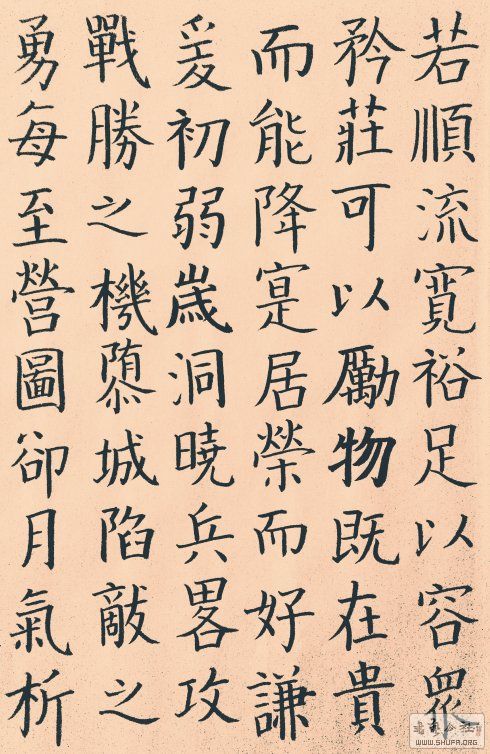 若順流寬裕足以容眾
矜莊可以勵物既在貴
而能降寔居榮而好謙
爰初弱歲洞曉兵畧攻
戰勝之機隳城陷敵之
勇每至營圖卻月氣析
WWW.SHUFA.ORG